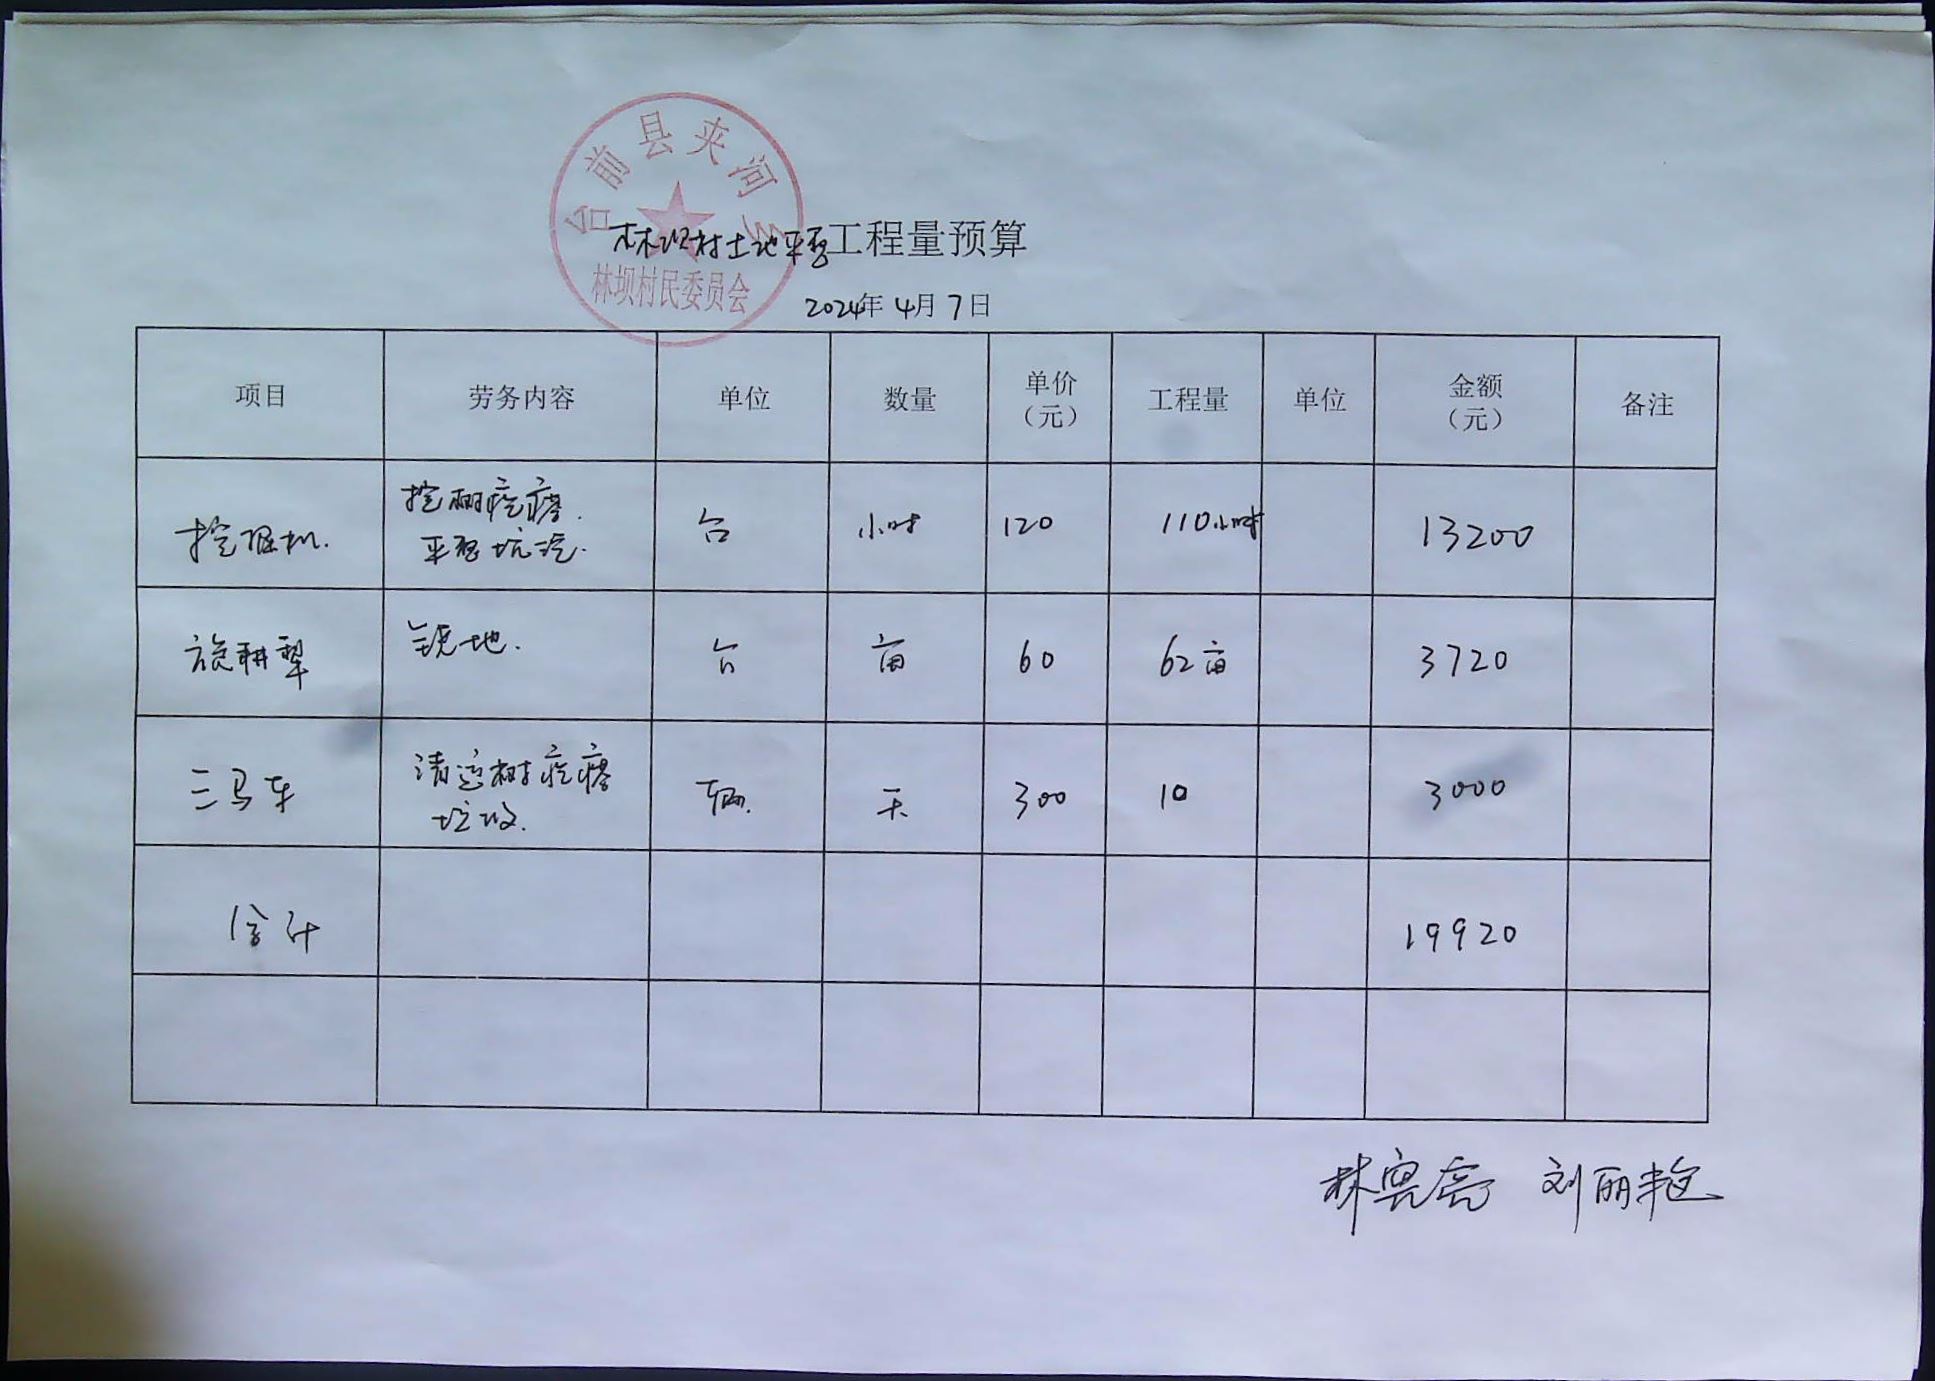 台前县夹河乡
林坝村民委员会
林坝村土地平整工程量预算
2024年4月7日
项目 劳务内容 单位 数量 单价（元） 工程量 单位 金额（元） 备注
挖掘机. 挖树疙瘩. 平整坑洼. 台 小时 120 110小时 13200
旋耕犁 地. 台 亩 60 62亩 3720
三马车 清运树疙瘩垃圾. 辆. 天 300 10 3000
合计 19920
刘丽艳